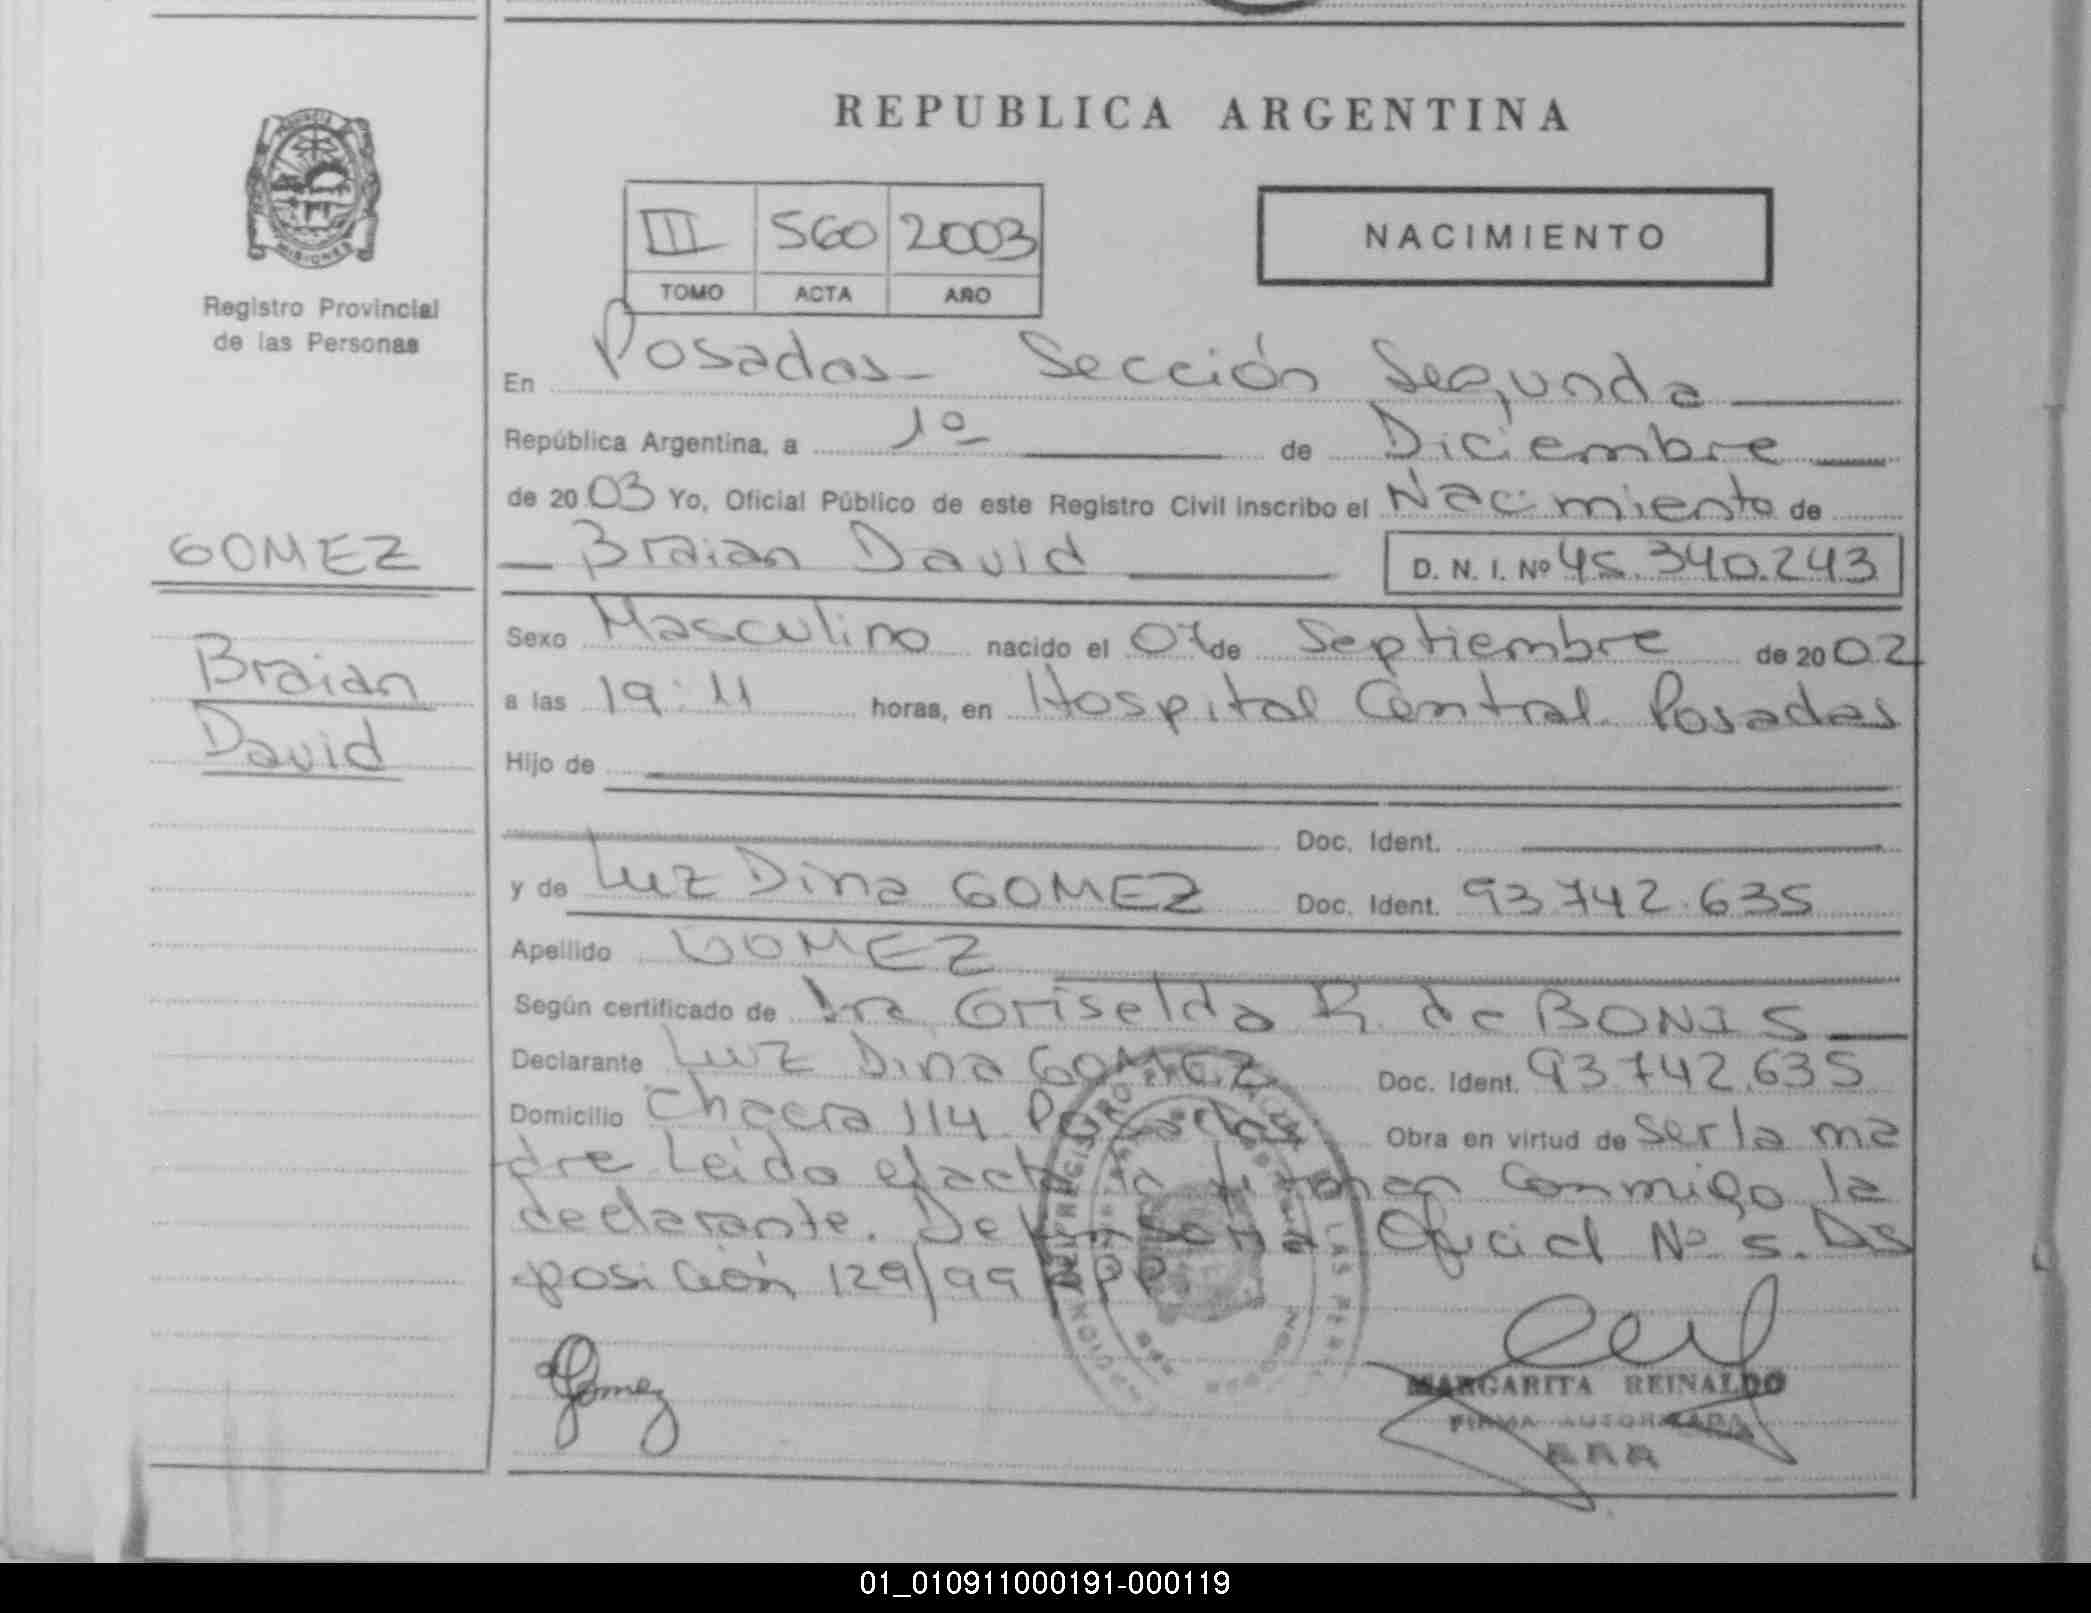 REPUBLICA ARGENTINA
PROVINCIA
MISIONES
Registro Provincial
de las Personas
III 560 2003
TOMO ACTA AÑO
NACIMIENTO
En Posadas - Sección Segunda
República Argentina, a 1º de Diciembre
de 2003 Yo, Oficial Público de este Registro Civil inscribo el Nacimiento de
GOMEZ
Braian David D. N. I. Nº 45.340.243
Braian
David
Sexo Masculino nacido el 07 de Septiembre de 2002
a las 19:11 horas, en Hospital Central Posadas
Hijo de
Doc. Ident.
y de Luz Dina GOMEZ Doc. Ident. 93.742.635
Apellido GOMEZ
Según certificado de Dra Griselda R. de BONIS
Declarante Luz Dina GOMEZ Doc. Ident. 93.742.635
Domicilio Chacra 114 Posadas Obra en virtud de ser la ma
dre Leido el acta la firman conmigo la
declarante. Defensoria Oficial Nº 5. Dis
posición 129/99 RPP.
Gomez
MARGARITA REINALDO
FIRMA AUTORIZADA
01_010911000191-000119